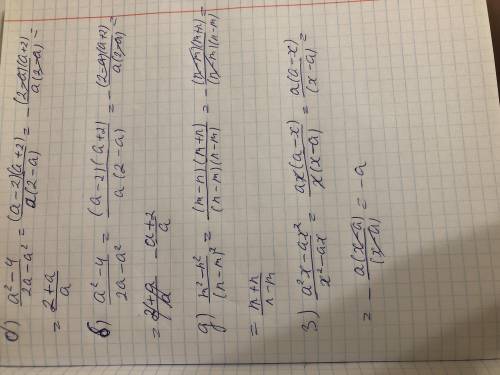 б) (a²-4)/(2a-a²) = ((a-2)(a+2))/(a(2-a)) = -((2-a)(a+2))/(a(2-a)) =
= (2+a)/a
в) (a²-4)/(2a-a²) = ((a-2)(a+2))/(a(2-a)) = -((2-a)(a+2))/(a(2-a)) =
= (2+a)/a -(a+2)/a
д) (n²-n²)/(n-m)² = ((m-n)(m+n))/((n-m)(n-m)) = -((n-m)(m+n))/((n-m)(n-m)) =
= (m+n)/(n-m)
з) (a²x-ax²)/(x²-ax) = (ax(a-x))/(x(x-a)) = (a(a-x))/(x-a) =
= -(a(x-a))/(x-a) = -a